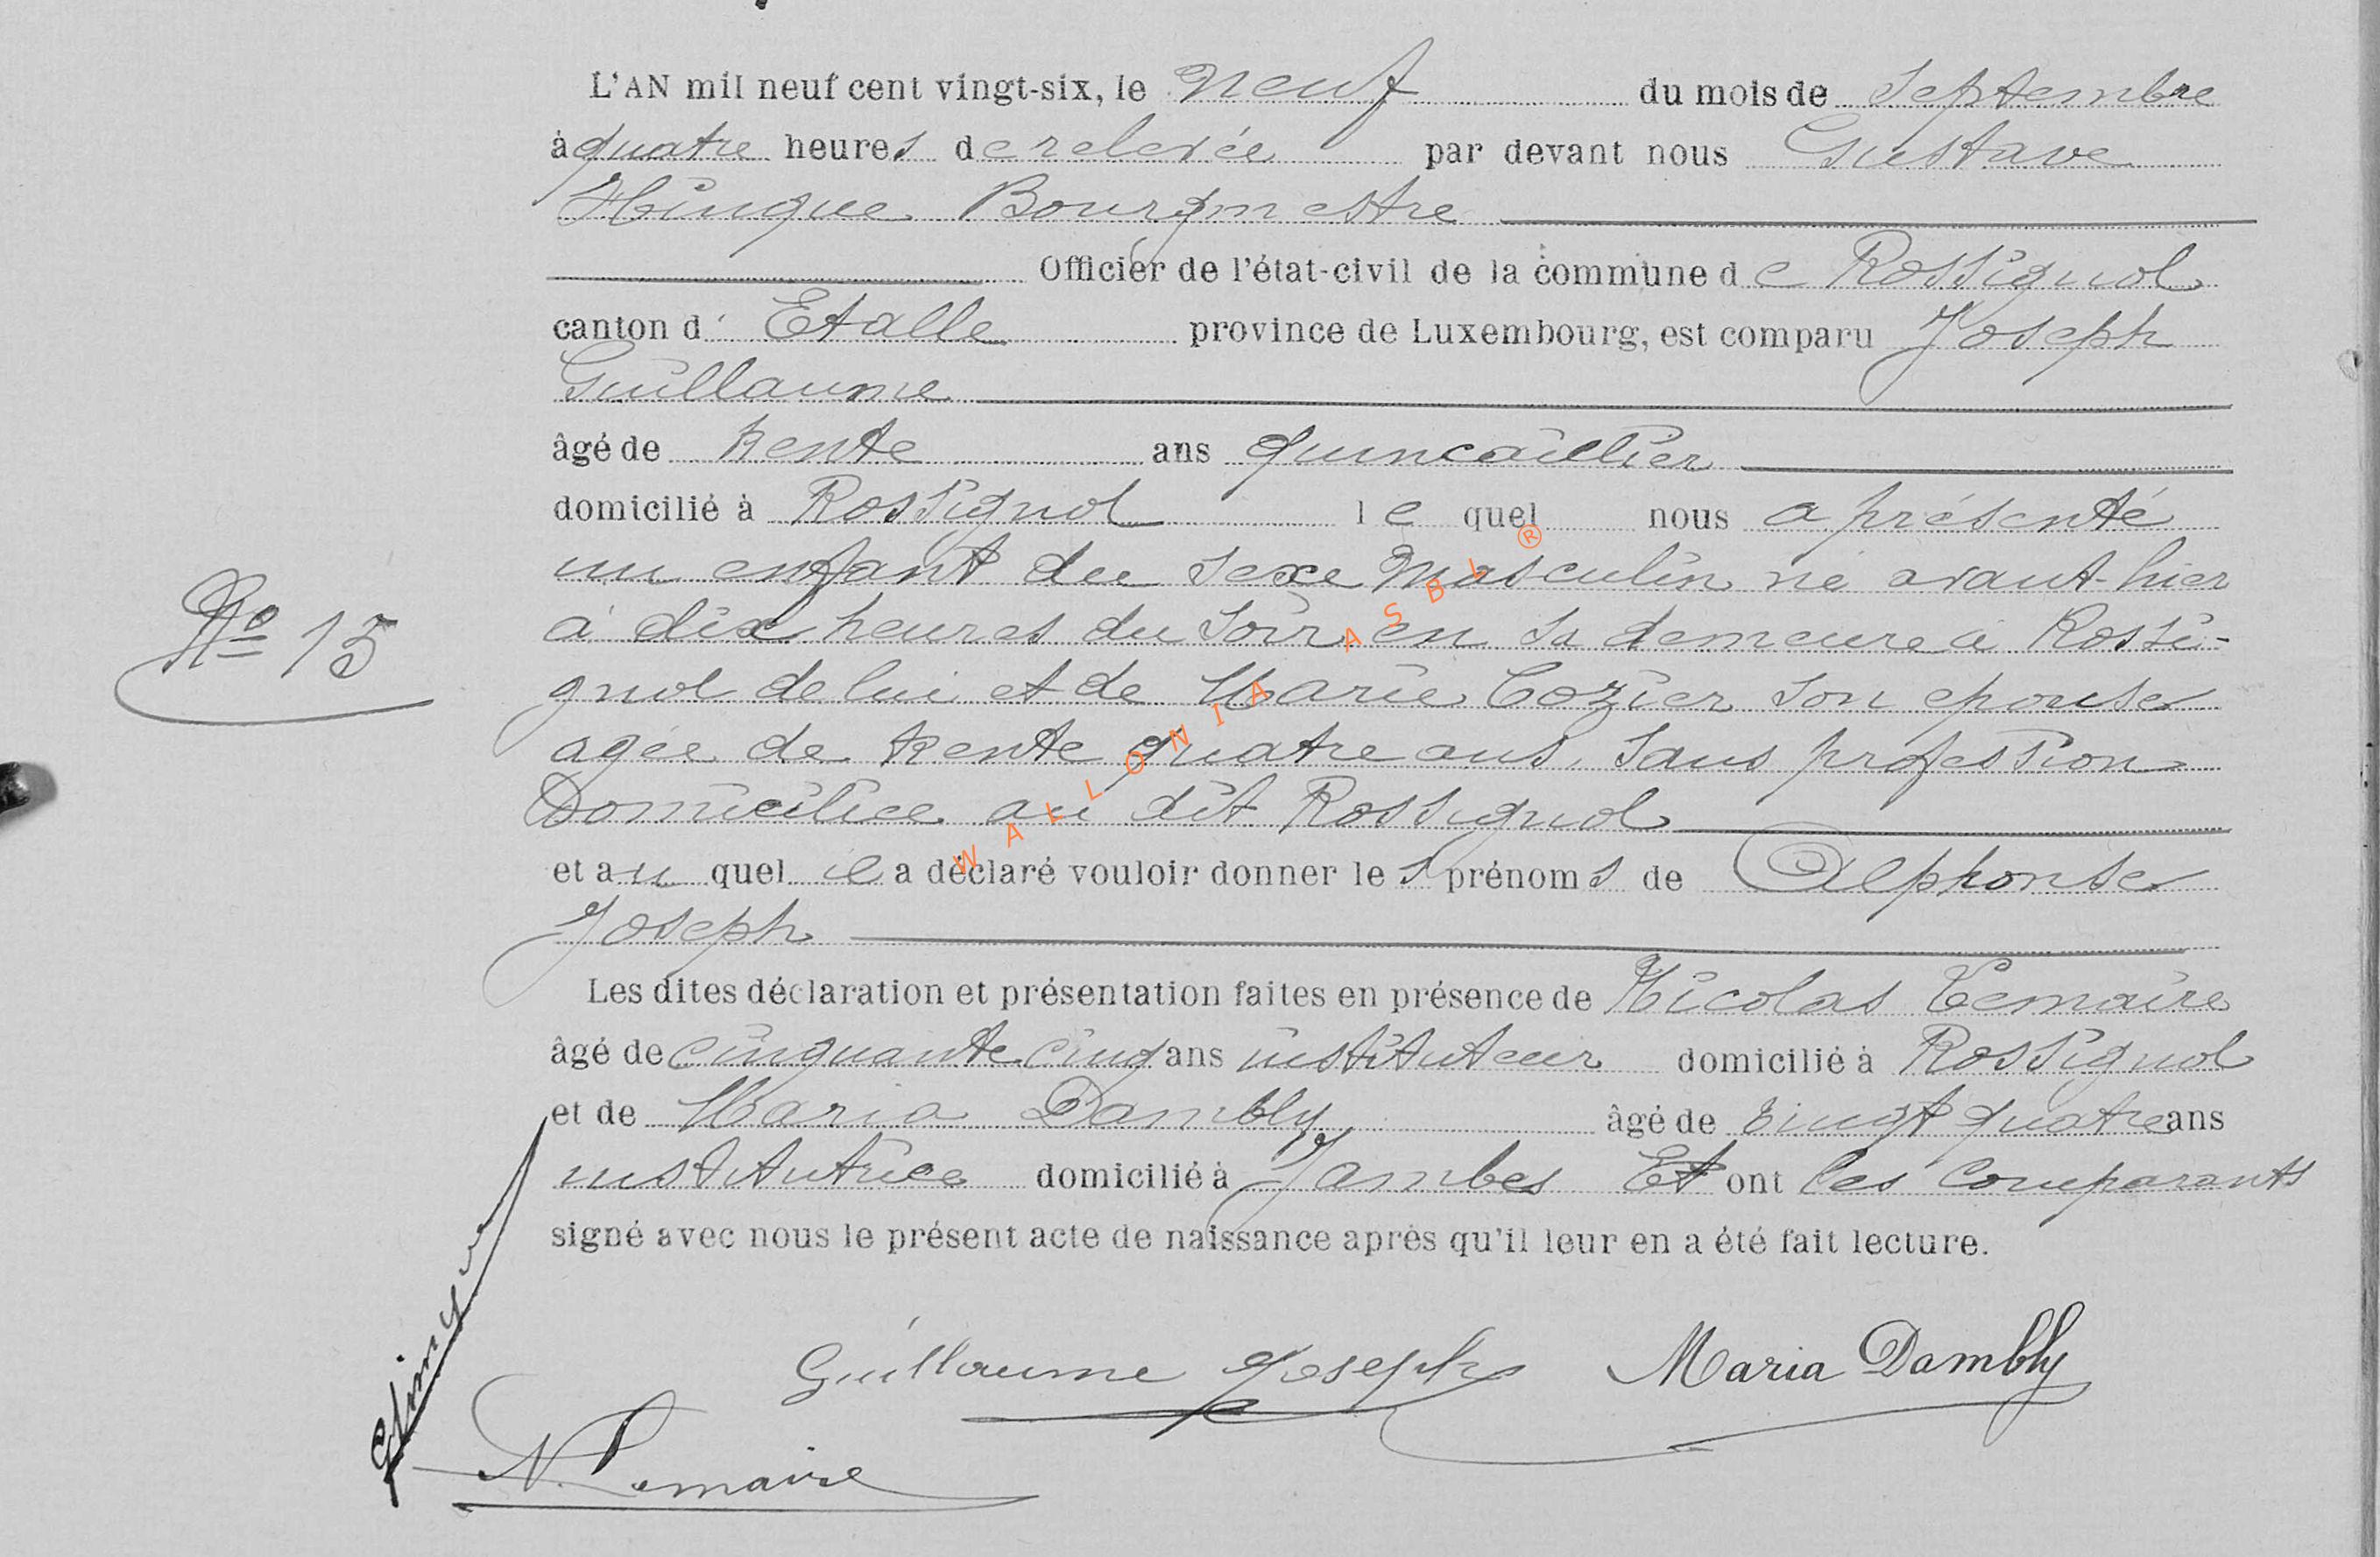 L'AN mil neuf cent vingt-six, le neuf du mois de Septembre
à quatre heures de relevée par devant nous Gustave
Hinque Bourgmestre
Officier de l'état-civil de la commune de Rossignol
canton d' Etalle province de Luxembourg, est comparu Joseph
Guillaume
âgé de trente ans quincaillier
domicilié à Rossignol lequel nous a présenté
un enfant du sexe masculin né avant-hier
à dix heures du soir en sa demeure à Rossi-
gnol de lui et de Marie Cozier son epouse
agée de trente quatre ans, sans profession
Domiciliée au dit Rossignol
et au quel il a déclaré vouloir donner les prénoms de Alphonse
Joseph
Les dites déclaration et présentation faites en présence de Nicolas Lemaire
âgé de cinquante cinq ans instituteur domicilié à Rossignol
et de Maria Dambly âgé de vingt quatre ans
institutrice domicilié à Jambes Et ont les comparants
signé avec nous le présent acte de naissance après qu'il leur en a été fait lecture.
No 15
WALLONIA ASBL ®
Guillaume Joseph Maria Dambly
N. Lemaire